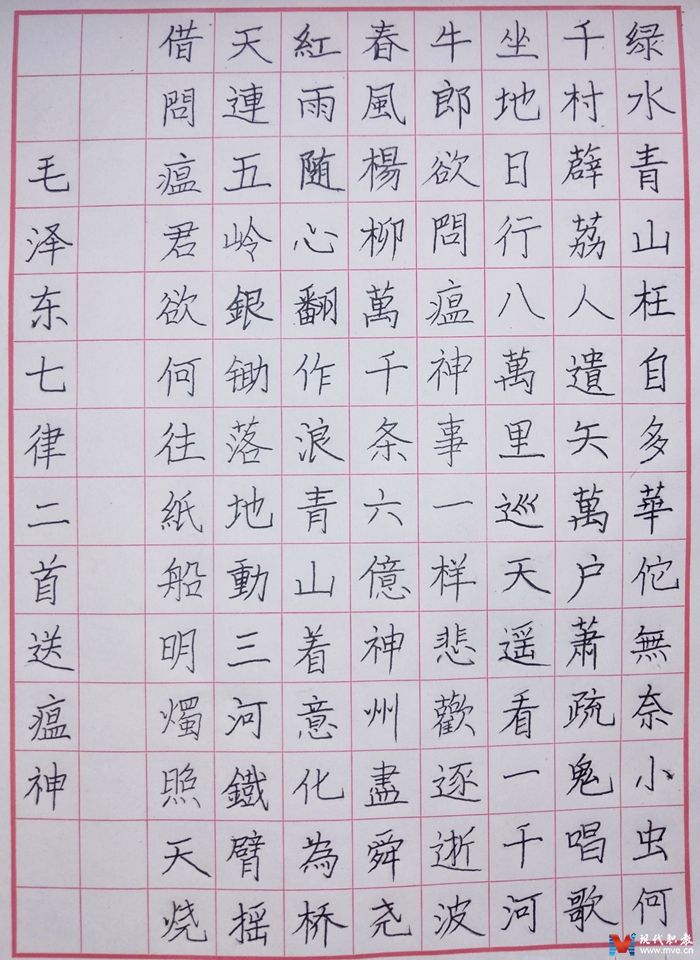 绿水青山枉自多華佗無奈小虫何
千村薜荔人遺矢萬户蕭疏鬼唱歌
坐地日行八萬里巡天遥看一千河
牛郎欲問瘟神事一样悲歡逐逝波
春風楊柳萬千条六億神州盡舜尧
紅雨随心翻作浪青山着意化為桥
天連五岭銀锄落地動三河鐵臂摇
借問瘟君欲何往紙船明燭照天烧
毛泽东七律二首送瘟神
现代职教
www.mve.cn